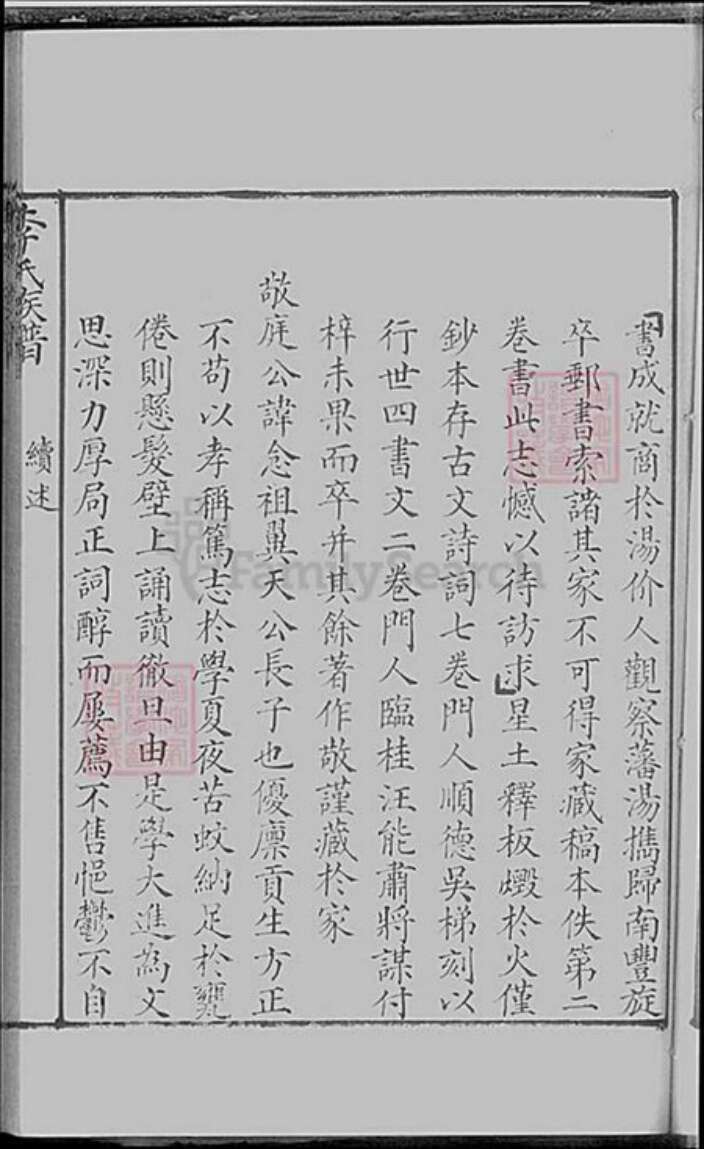 書成就商於湯价人觀察藩湯携歸南豐旋
卒郵書索諸其家不可得家藏稿本佚第二
卷書此志憾以待訪求星土釋板燬於火僅
鈔本存古文詩詞七卷門人順德吳梯刻以
行世四書文二卷門人臨桂汪能肅將謀付
梓未果而卒并其餘著作敬謹藏於家
敬庭公諱念祖翼天公長子也優廩貢生方正
不苟以孝稱篤志於學夏夜苦蚊納足於甕
倦則懸髮壁上誦讀徹旦由是學大進為文
思深力厚局正詞醇而屢薦不售悒鬱不自
李氏族譜 續述
FamilySearch